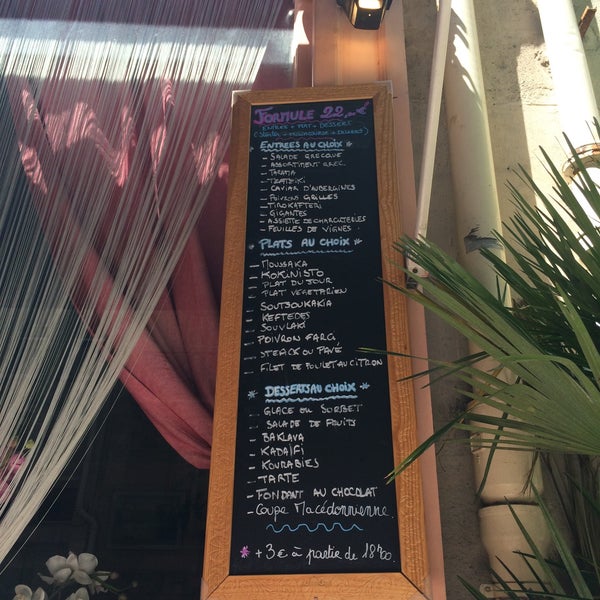 FORMULE 22,00
ENTREE + PLAT + DESSERT
ENTREES AU CHOIX
- SALADE GRECQUE
- ASSORTIMENT GREC.
- TARAMA
- TZATZIKI
- CAVIAR D'AUBERGINES
- POIVRONS GRILLES
- TIROKAFTERI
- GIGANTES
- ASSIETTE DE CHARCUTERIES
- FEUILLES DE VIGNES
* PLATS AU CHOIX *
- MOUSSAKA
- KOKINISTO
- PLAT DU JOUR
- PLAT VEGETARIEN
- SOUTSOUKAKIA
- KEFTEDES
- SOUVLAKI
- POIVRON FARCI
- STEACK OU PAVÉ
- FILET DE POULET AU CITRON
* DESSERTS AU CHOIX *
- GLACE OU SORBET
- SALADE DE FRUITS
- BAKLAVA
- KADAÏFI
- KOURABIES
- TARTE
- FONDANT AU CHOCOLAT
- COUPE MACÉDONNIENNE
* + 3€ à partir de 18H00